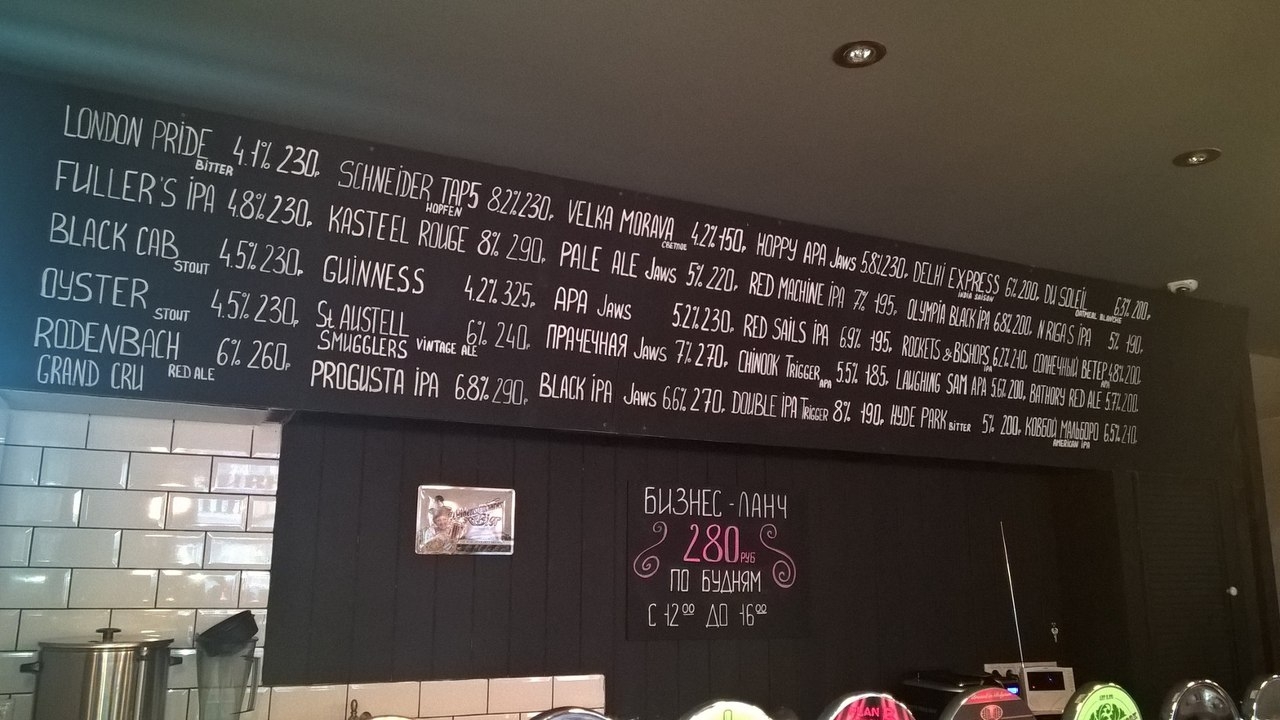 LONDON PRIDE BITTER 4.1% 230р
FULLER'S IPA 4.8% 230р
BLACK CAB STOUT 4.5% 230р
OYSTER STOUT 4.5% 230р
RODENBACH GRAND CRU RED ALE 6% 260р
SCHNEIDER TAP5 HOPFEN 8.2% 230р
KASTEEL ROUGE 8% 290р
GUINNESS 4.2% 325р
St AUSTELL SMUGGLERS VINTAGE ALE 6% 240р
PROGUSTA IPA 6.8% 290р
VELKA MORAVA СВЕТЛОЕ 4.2% 150р
PALE ALE JAWS 5% 220р
APA JAWS 5.2% 230р
ПРАЧЕЧНАЯ JAWS 7% 270р
BLACK IPA JAWS 6.6% 270р
HOPPY APA JAWS 5.8% 230р
RED MACHINE IPA 7% 195р
RED SAILS IPA 6.9% 195р
CHINOOK TRIGGER APA 5.5% 185р
DOUBLE IPA TRIGGER 8% 190р
DELHI EXPRESS INDIA SAISON 6% 200р
OLYMPIA BLACK IPA 6.8% 200р
ROCKETS & BISHOPS IPA 6.2% 210р
LAUGHING SAM APA 5.6% 200р
HYDE PARK BITTER 5% 200р
DU SOLEIL OATMEAL BLANCHE 6.3% 200р
N RIGA'S IPA 5% 190р
СОЛНЕЧНЫЙ ВЕТЕР APA 4.8% 200р
BATHORY RED ALE 5.7% 200р
КОВБОЙ МАЛЬБОРО AMERICAN IPA 6.5% 210р
БИЗНЕС-ЛАНЧ
280 РУБ
ПО БУДНЯМ
С 12⁰⁰ ДО 16⁰⁰